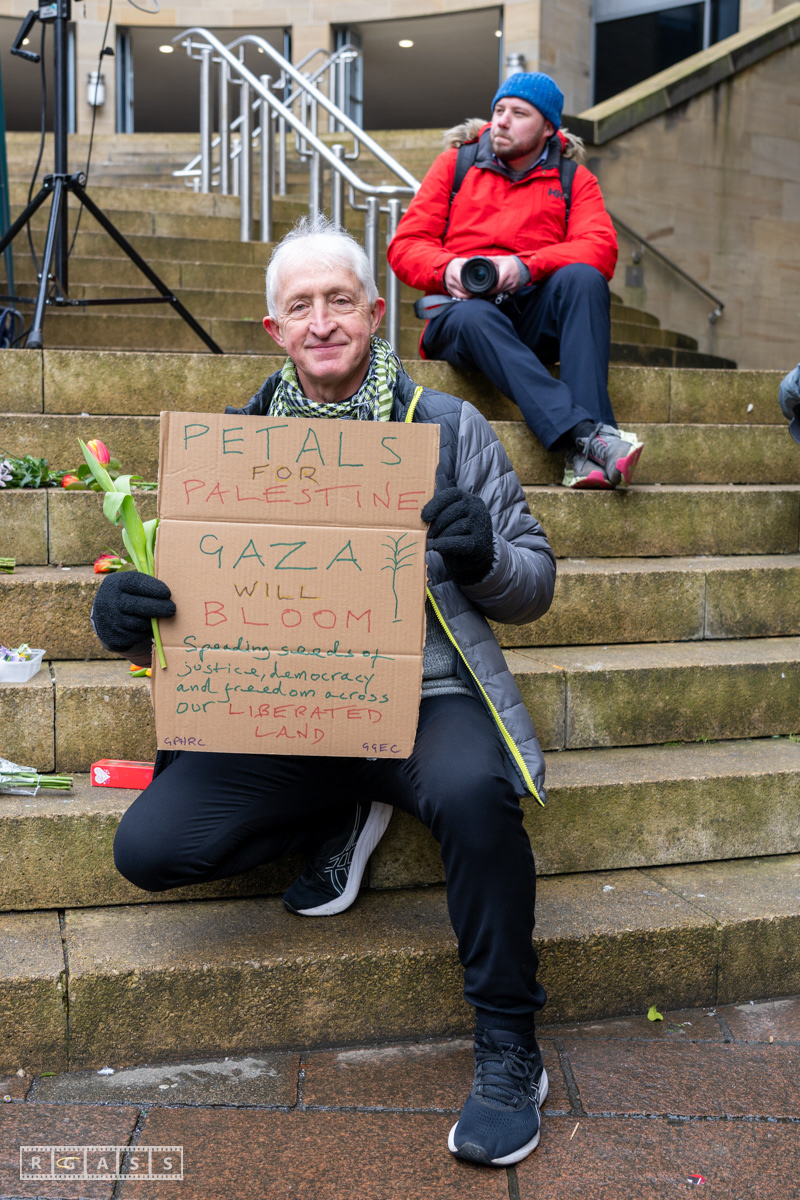 PETALS
FOR
PALESTINE
GAZA
WILL
BLOOM
Spreading seeds of
justice, democracy
and freedom across
our LIBERATED
LAND
GPHRC GGEC
HH
RGASS